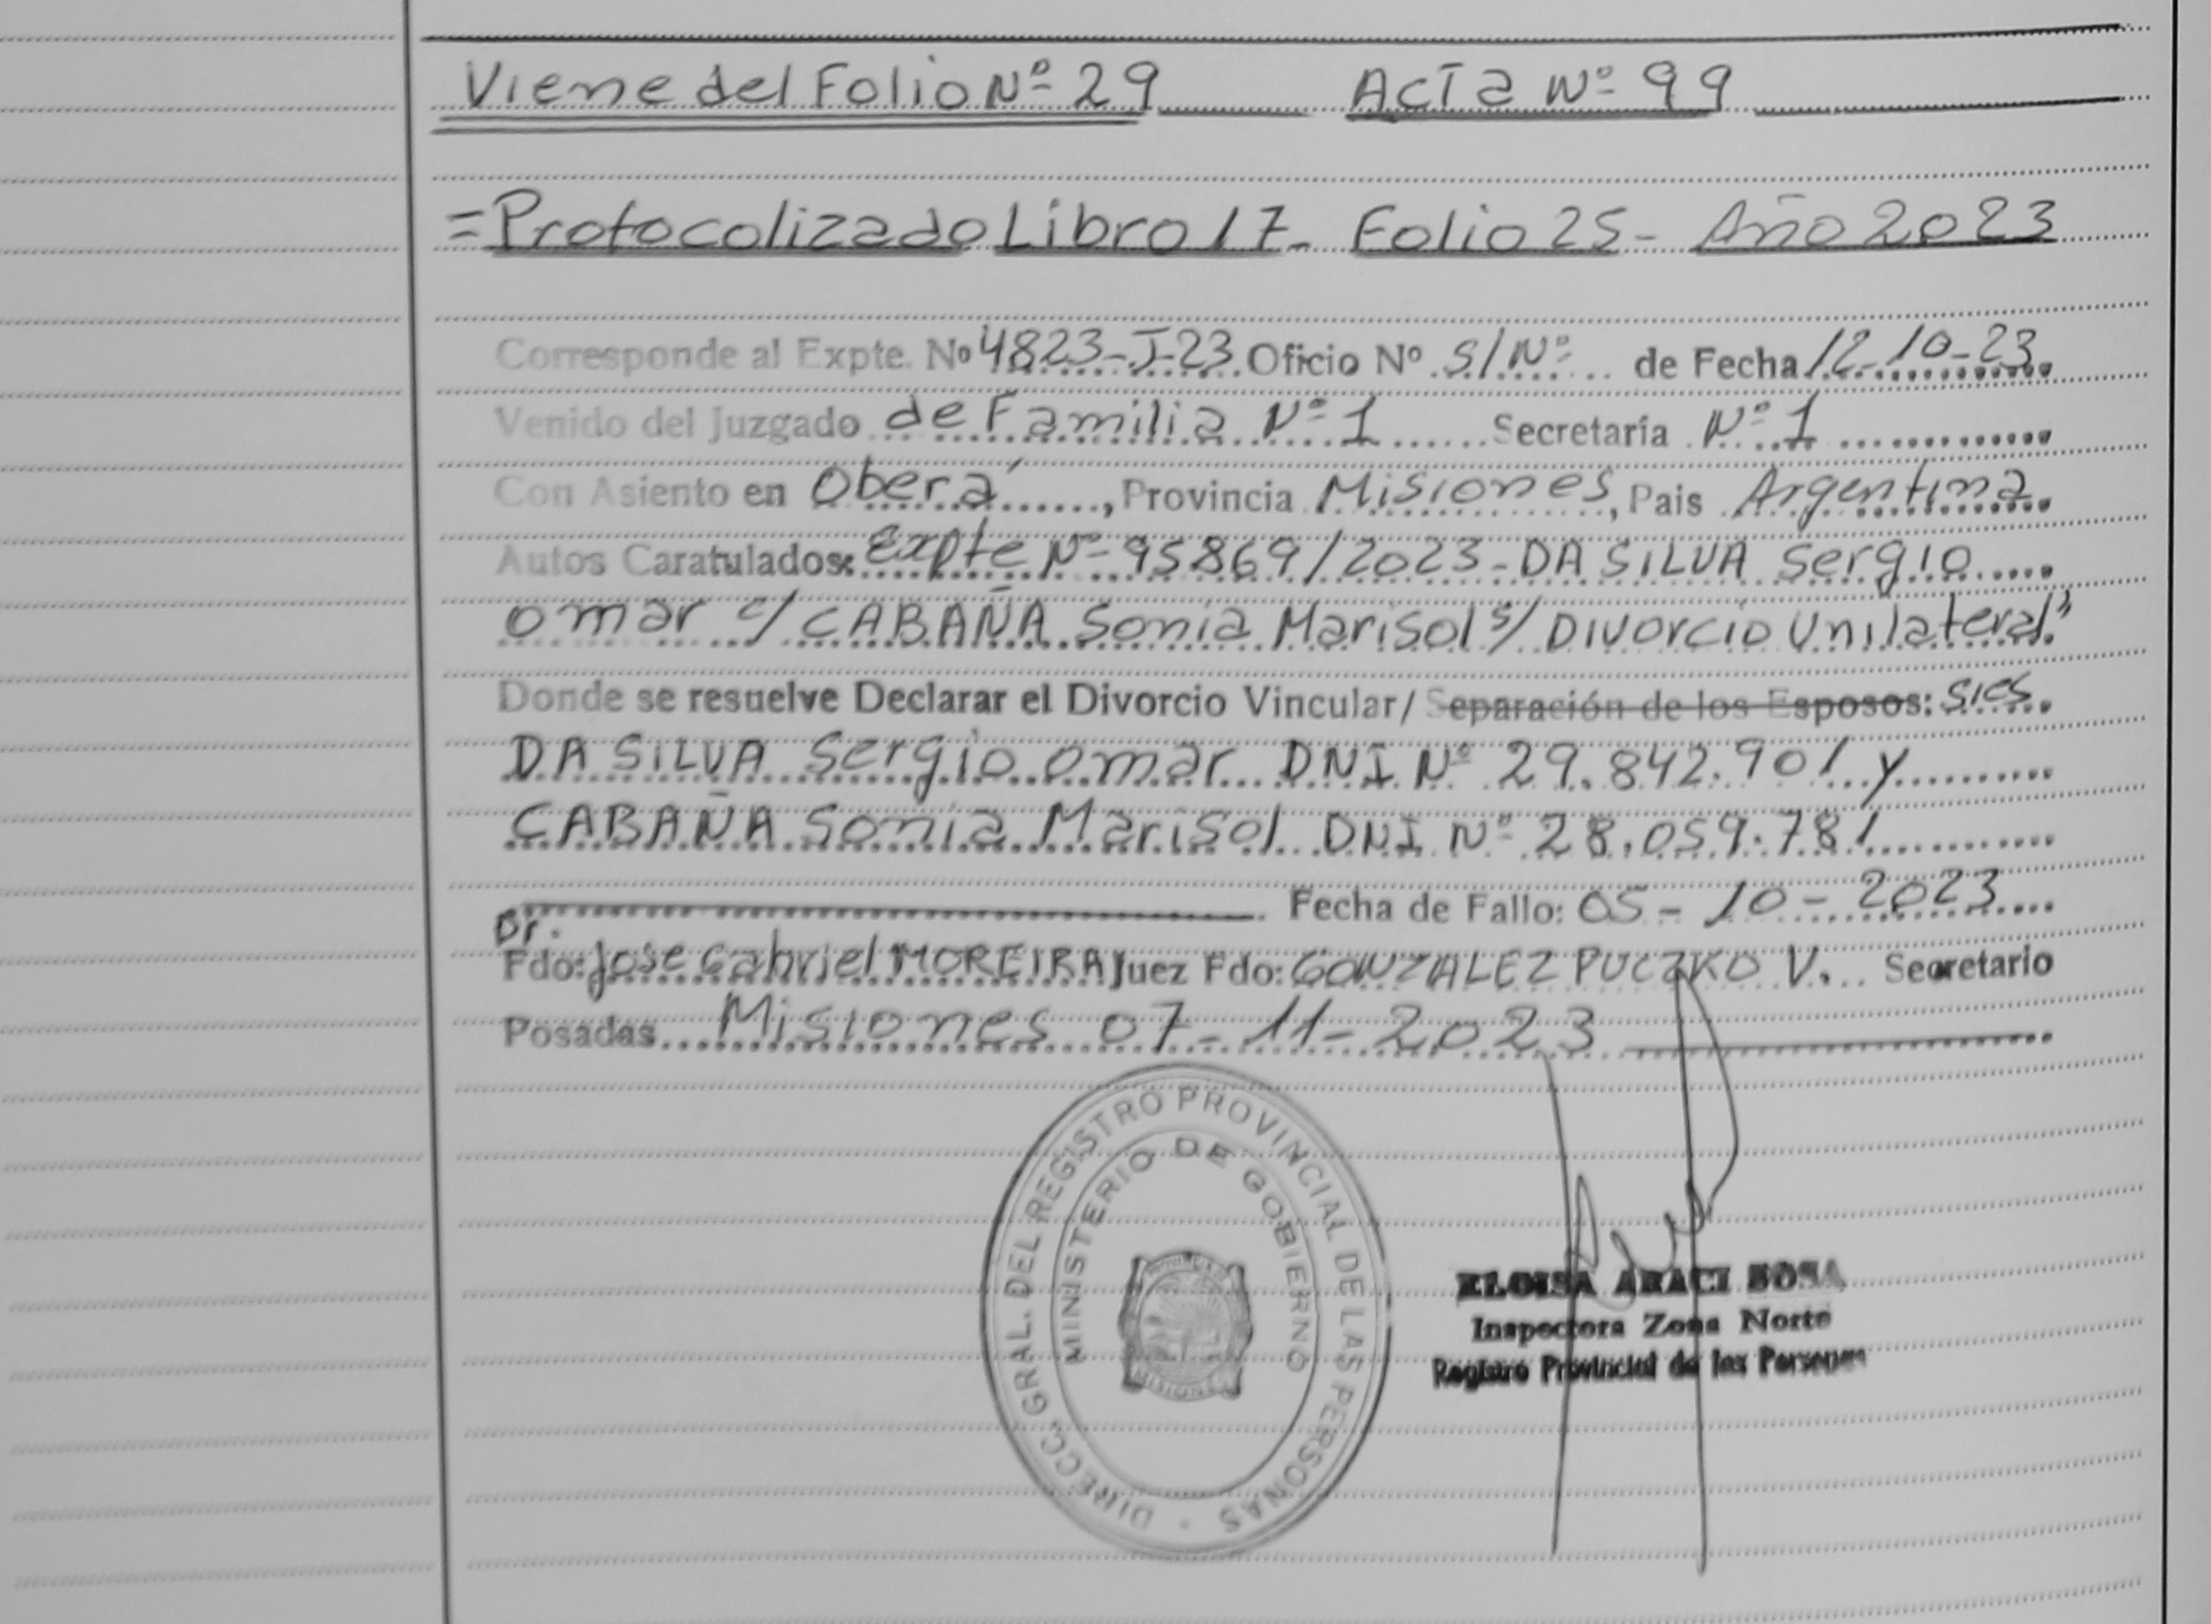 Viene del Folio Nº 29 Acta Nº 99
= Protocolizado Libro 17 - Folio 25 - Año 2023
Corresponde al Expte. Nº 4823-J-23 Oficio Nº S/Nº de Fecha 12-10-23
Venido del Juzgado de Familia Nº 1 Secretaría Nº 1
Con Asiento en Oberá, Provincia Misiones, Pais Argentina.
Autos Caratulados: Expte Nº 95869/2023 - DA SILVA Sergio
Omar c/ CABAÑA Sonia Marisol s/ Divorcio Unilateral"
Donde se resuelve Declarar el Divorcio Vincular/ Separación de los Esposos: Sres.
DA SILVA Sergio Omar DNI Nº 29.842.901 y
CABAÑA Sonia Marisol DNI Nº 28.059.781
Fecha de Fallo: 05-10-2023
Dr.
Fdo: Jose Gabriel MOREIRA Juez Fdo: GONZALEZ PUCZKO V. Secretario
Posadas Misiones 07-11-2023
DIRECC. GRAL. DEL REGISTRO PROVINCIAL DE LAS PERSONAS
MINISTERIO DE GOBIERNO
MISIONES
ELOISA ARACI SOSA
Inspectora Zona Norte
Registro Provincial de las Personas